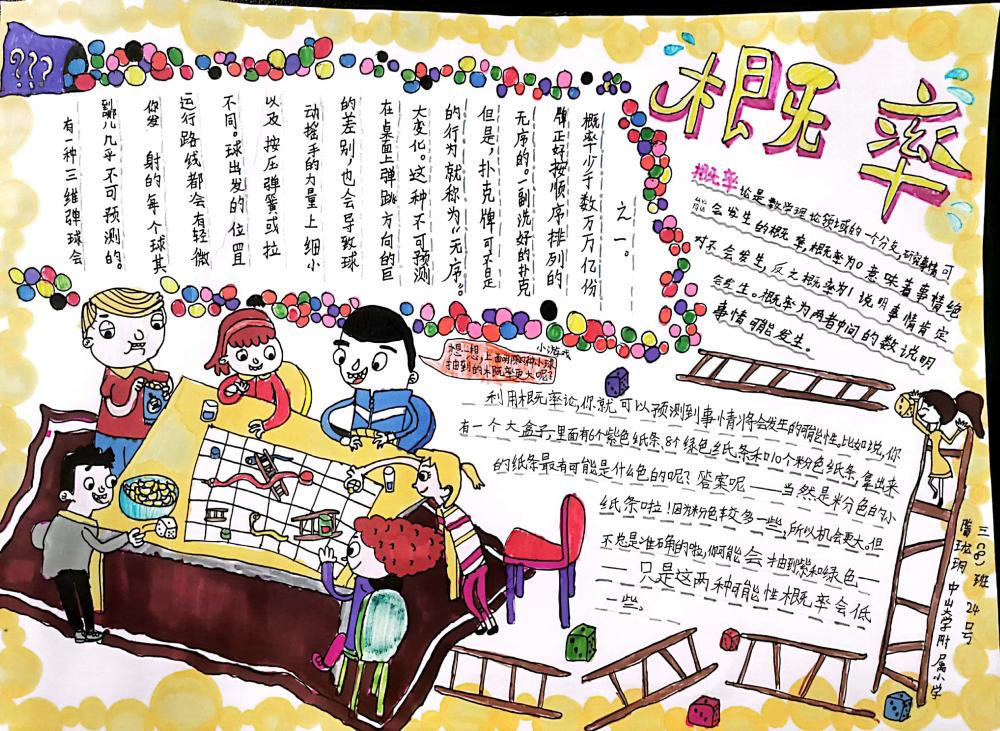 ???
概率
概率论是数学理论领域的一个分支,研究事情可
能会发生的概率,概率为0意味着事情绝
对不会发生,反之概率为1说明事情肯定
会发生。概率为两者中间的数说明
事情可能发生。
有一种三维弹球会
到几几乎不可预测的。
你发射的每个球其
运行路线都会有轻微
不同。球出发的位置
以及按压弹簧或拉
动摇手的力量上细小
的差别,也会导致球
在桌面上弹跳方向的巨
大变化。这种不可预测
的行为就称为“无序”。
但是,扑克牌可不是
无序的。一副洗好的扑克
牌正好按顺序排列的
概率少于数万万亿份
之一。
小游戏
想一想,上面哪种小球
抽到的概率更大呢?
利用概率论,你就可以预测到事情将会发生的可能性,比如说,你
有一个大盒子,里面有6个紫色纸条、8个绿色纸条和10个粉色纸条,拿出来
的纸条最有可能是什么色的呢?答案呢——当然是粉色的小
纸条啦!因为粉色较多一些,所以机会更大。但
不总是准确的啦,你可能会抽到紫和绿色——
只是这两种可能性概率会低
一些。
三(8)班 24号
中山大学附属小学